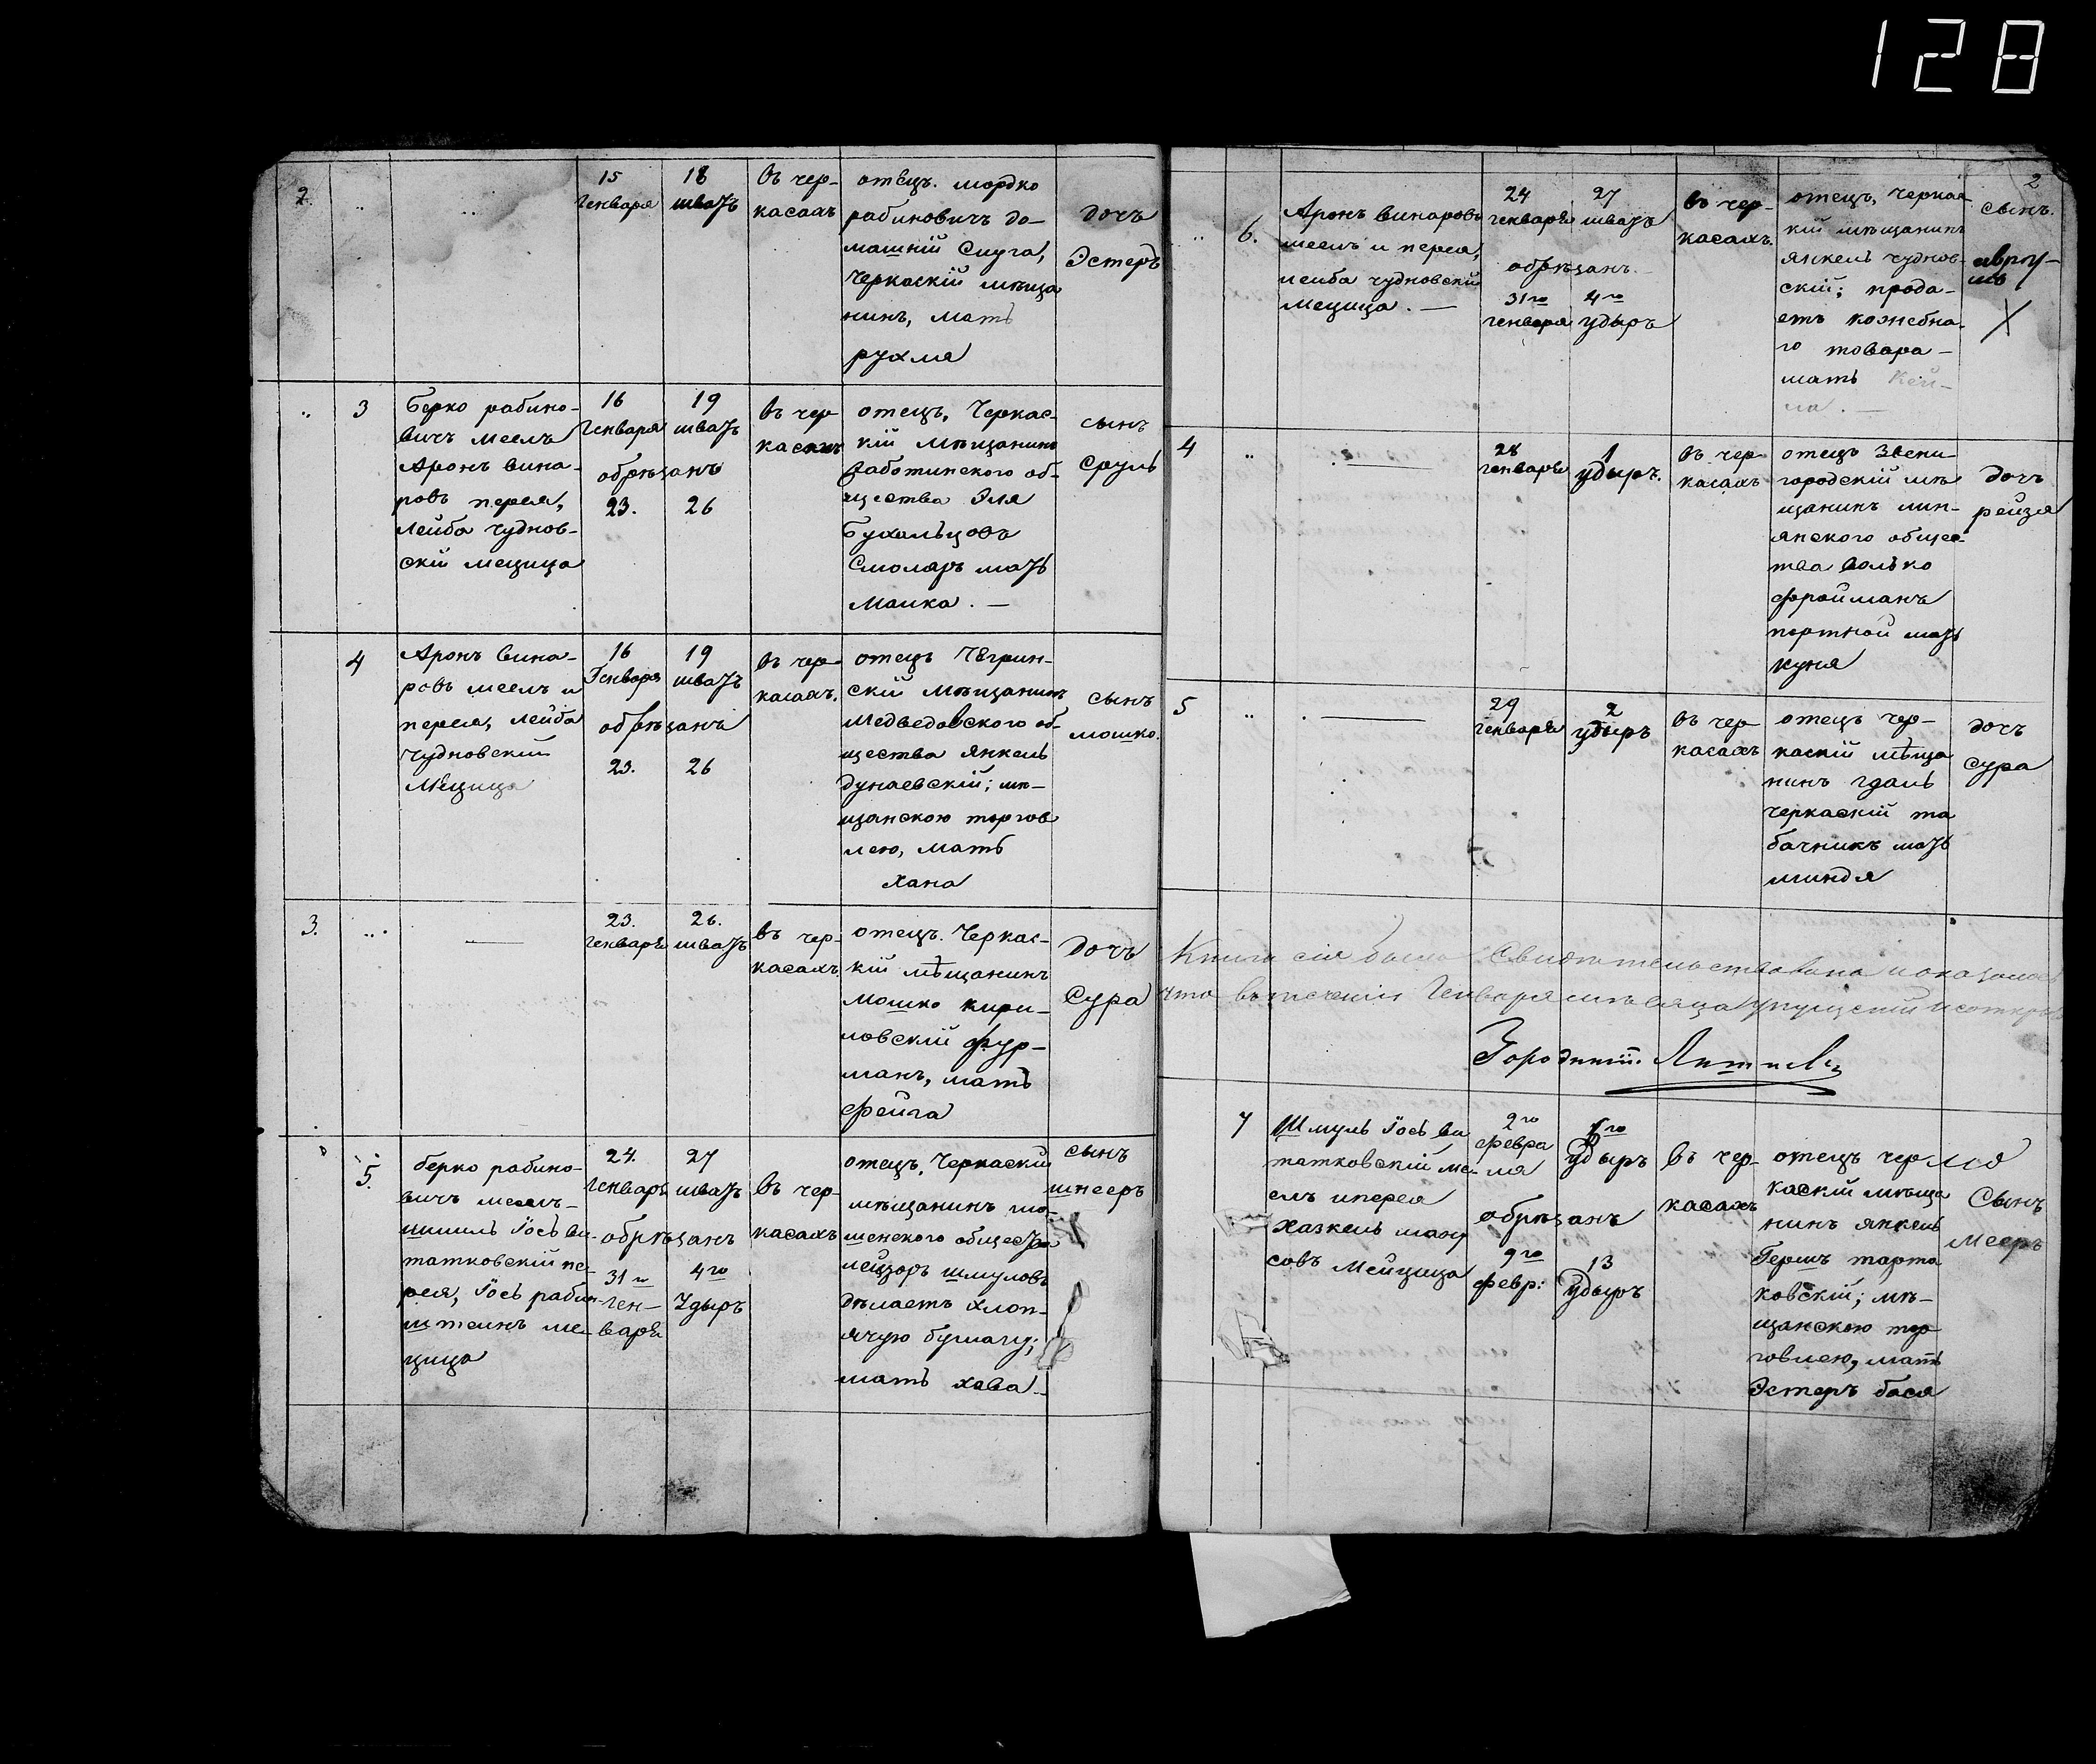 128
2.
15
Генваря
18
шватъ
въ чер-
касахъ
отецъ. мордко
рабиновичъ до-
машній Слуга,
Черкаскій мѣща
нинъ, мать
рухля
дочъ
Эстеръ
3
Берко рабино-
вичъ меелъ
Аронъ вина-
ровъ перея,
Лейба чуднов-
скій мецица
16
Генваря
19
шватъ
обрѣзанъ
23.
26
въ чер
касахъ
отецъ, Черкас-
кій мѣщанинъ
общества Эля
Бухальцовъ
Смоляръ мать
Малка. —
сынъ
сруль
4
Аронъ вина-
ровъ меелъ и
перея, лейба
чудновскій
Мецица
16
Генваря
19
шватъ
обрѣзанъ
23.
26
въ чер
касахъ.
отецъ Чѣгрин-
скій мѣщанинъ
медведовского об-
щества янкель
дунаевскій; мѣ-
щанскою торгов
лею, мать
хана
сынъ
мошко.
3.
23.
Генваря
26.
шватъ
въ чер-
касахъ.
отецъ. Черкас-
кій мѣщанинъ
мошко кири-
ловскій фур-
манъ, мать
фейга
Дочъ
Сура
5.
берко рабино-
вичъ меелъ-
шмилъ Іось ви-
татковскій пе-
рея, Іось рабин-
штеинъ ме-
цица
24.
Генваря
27
шватъ
обрѣзанъ
31го
ген-
варя
4го
Удыръ
въ чер-
касахъ
отецъ, Черкаскій
мѣщанинъ мо-
шенского общества
лейзоръ шмуловъ
дѣлаетъ хлоп-
ячую бумагу;
мать хава-
сынъ
шнееръ
2
6.
Аронъ винаровъ
меелъ и перея,
леиба чудновскій
мецица. —
24
генваря
27
шватъ
обрѣзанъ.
31го
генваря
4го
удыръ
въ чер-
касахъ.
отецъ, Черкас
кій мѣщанинъ
янкель чуднов-
скій; прода-
етъ кожевна-
го товара -
мать Кей-
ла. —
сынъ.
авру-
мъ
4
28
генваря
1
удыръ.
въ чер-
касахъ
отецъ Звени-
городскій мѣ
щанинъ лип-
янского общес-
тва волько
фройманъ
портной мать
куня
дочъ
рейзя
5
29
генваря
2
удыръ
въ чер
касахъ
отецъ чер-
каскій мѣща
нинъ гдаль
черкаскій та
бачникъ мать
миндя
дочъ
сура
Книга сія была Свидетельствована и оказалось
что въ теченіи Генваря мѣсяца упущеній
Городничій.
7
Шмуль Іось ви
татковскій ме-
елъ иперея
хазкель ману
совъ Мейцица
2го
февра
ля
удыръ
обрѣзанъ
9го
февр:
13
удыръ
въ чер-
касахъ
отецъ чер
каскій мѣща
нинъ янкель
Гершъ тарта
ковскій; мѣ-
щанскою тор
говлею, мать
Эстеръ бася
Сынъ
Мееръ